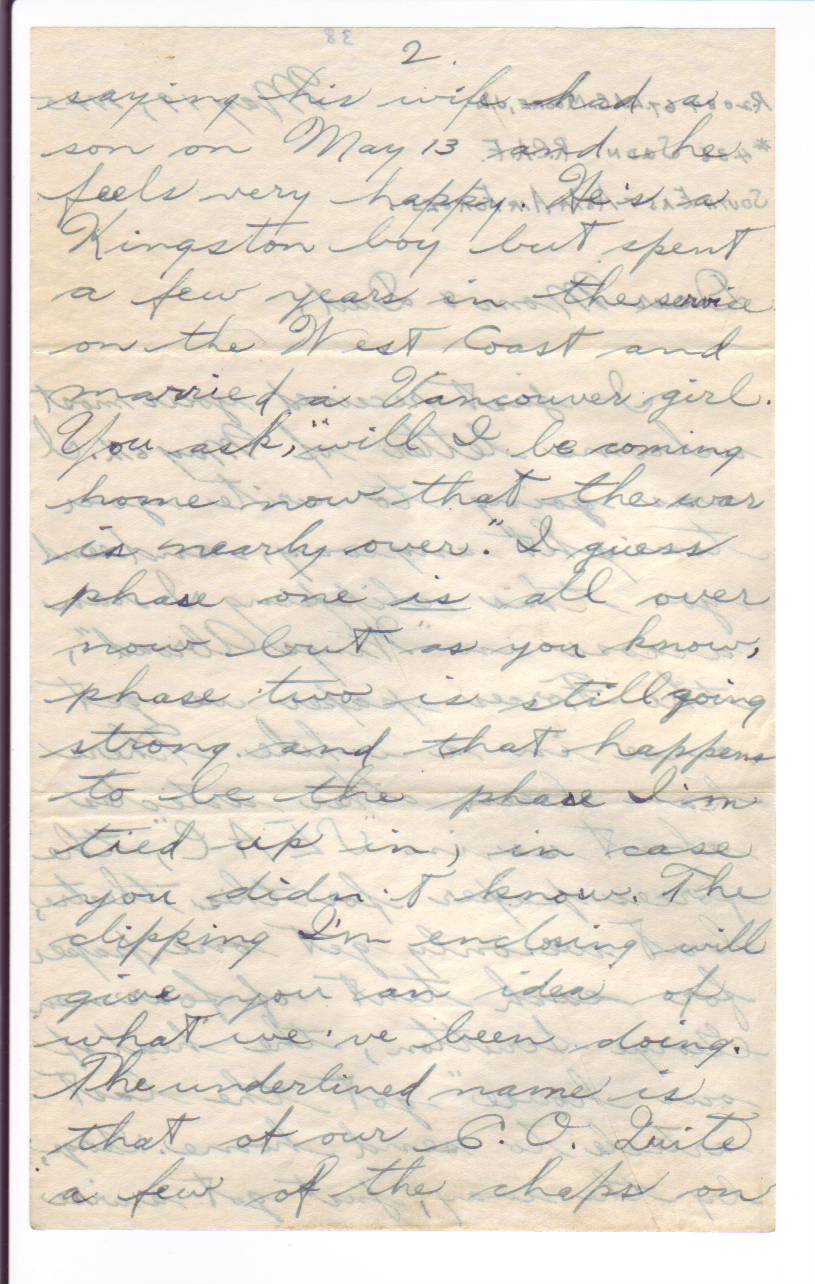 38
2.
saying his wife had a
son on May 13 and he
feels very happy. He's a
Kingston boy but spent
a few years in the service
on the West Coast and
married a Vancouver girl.
You ask, "will I be coming
home now that the war
is nearly over." I guess
phase one is all over
now but as you know,
phase two is still going
strong and that happens
to be the phase I'm
tied up in, in case
you didn't know. The
clipping I'm enclosing will
give you an idea of
what we've been doing.
The underlined name is
that of our C.O. Quite
a few of the chaps on